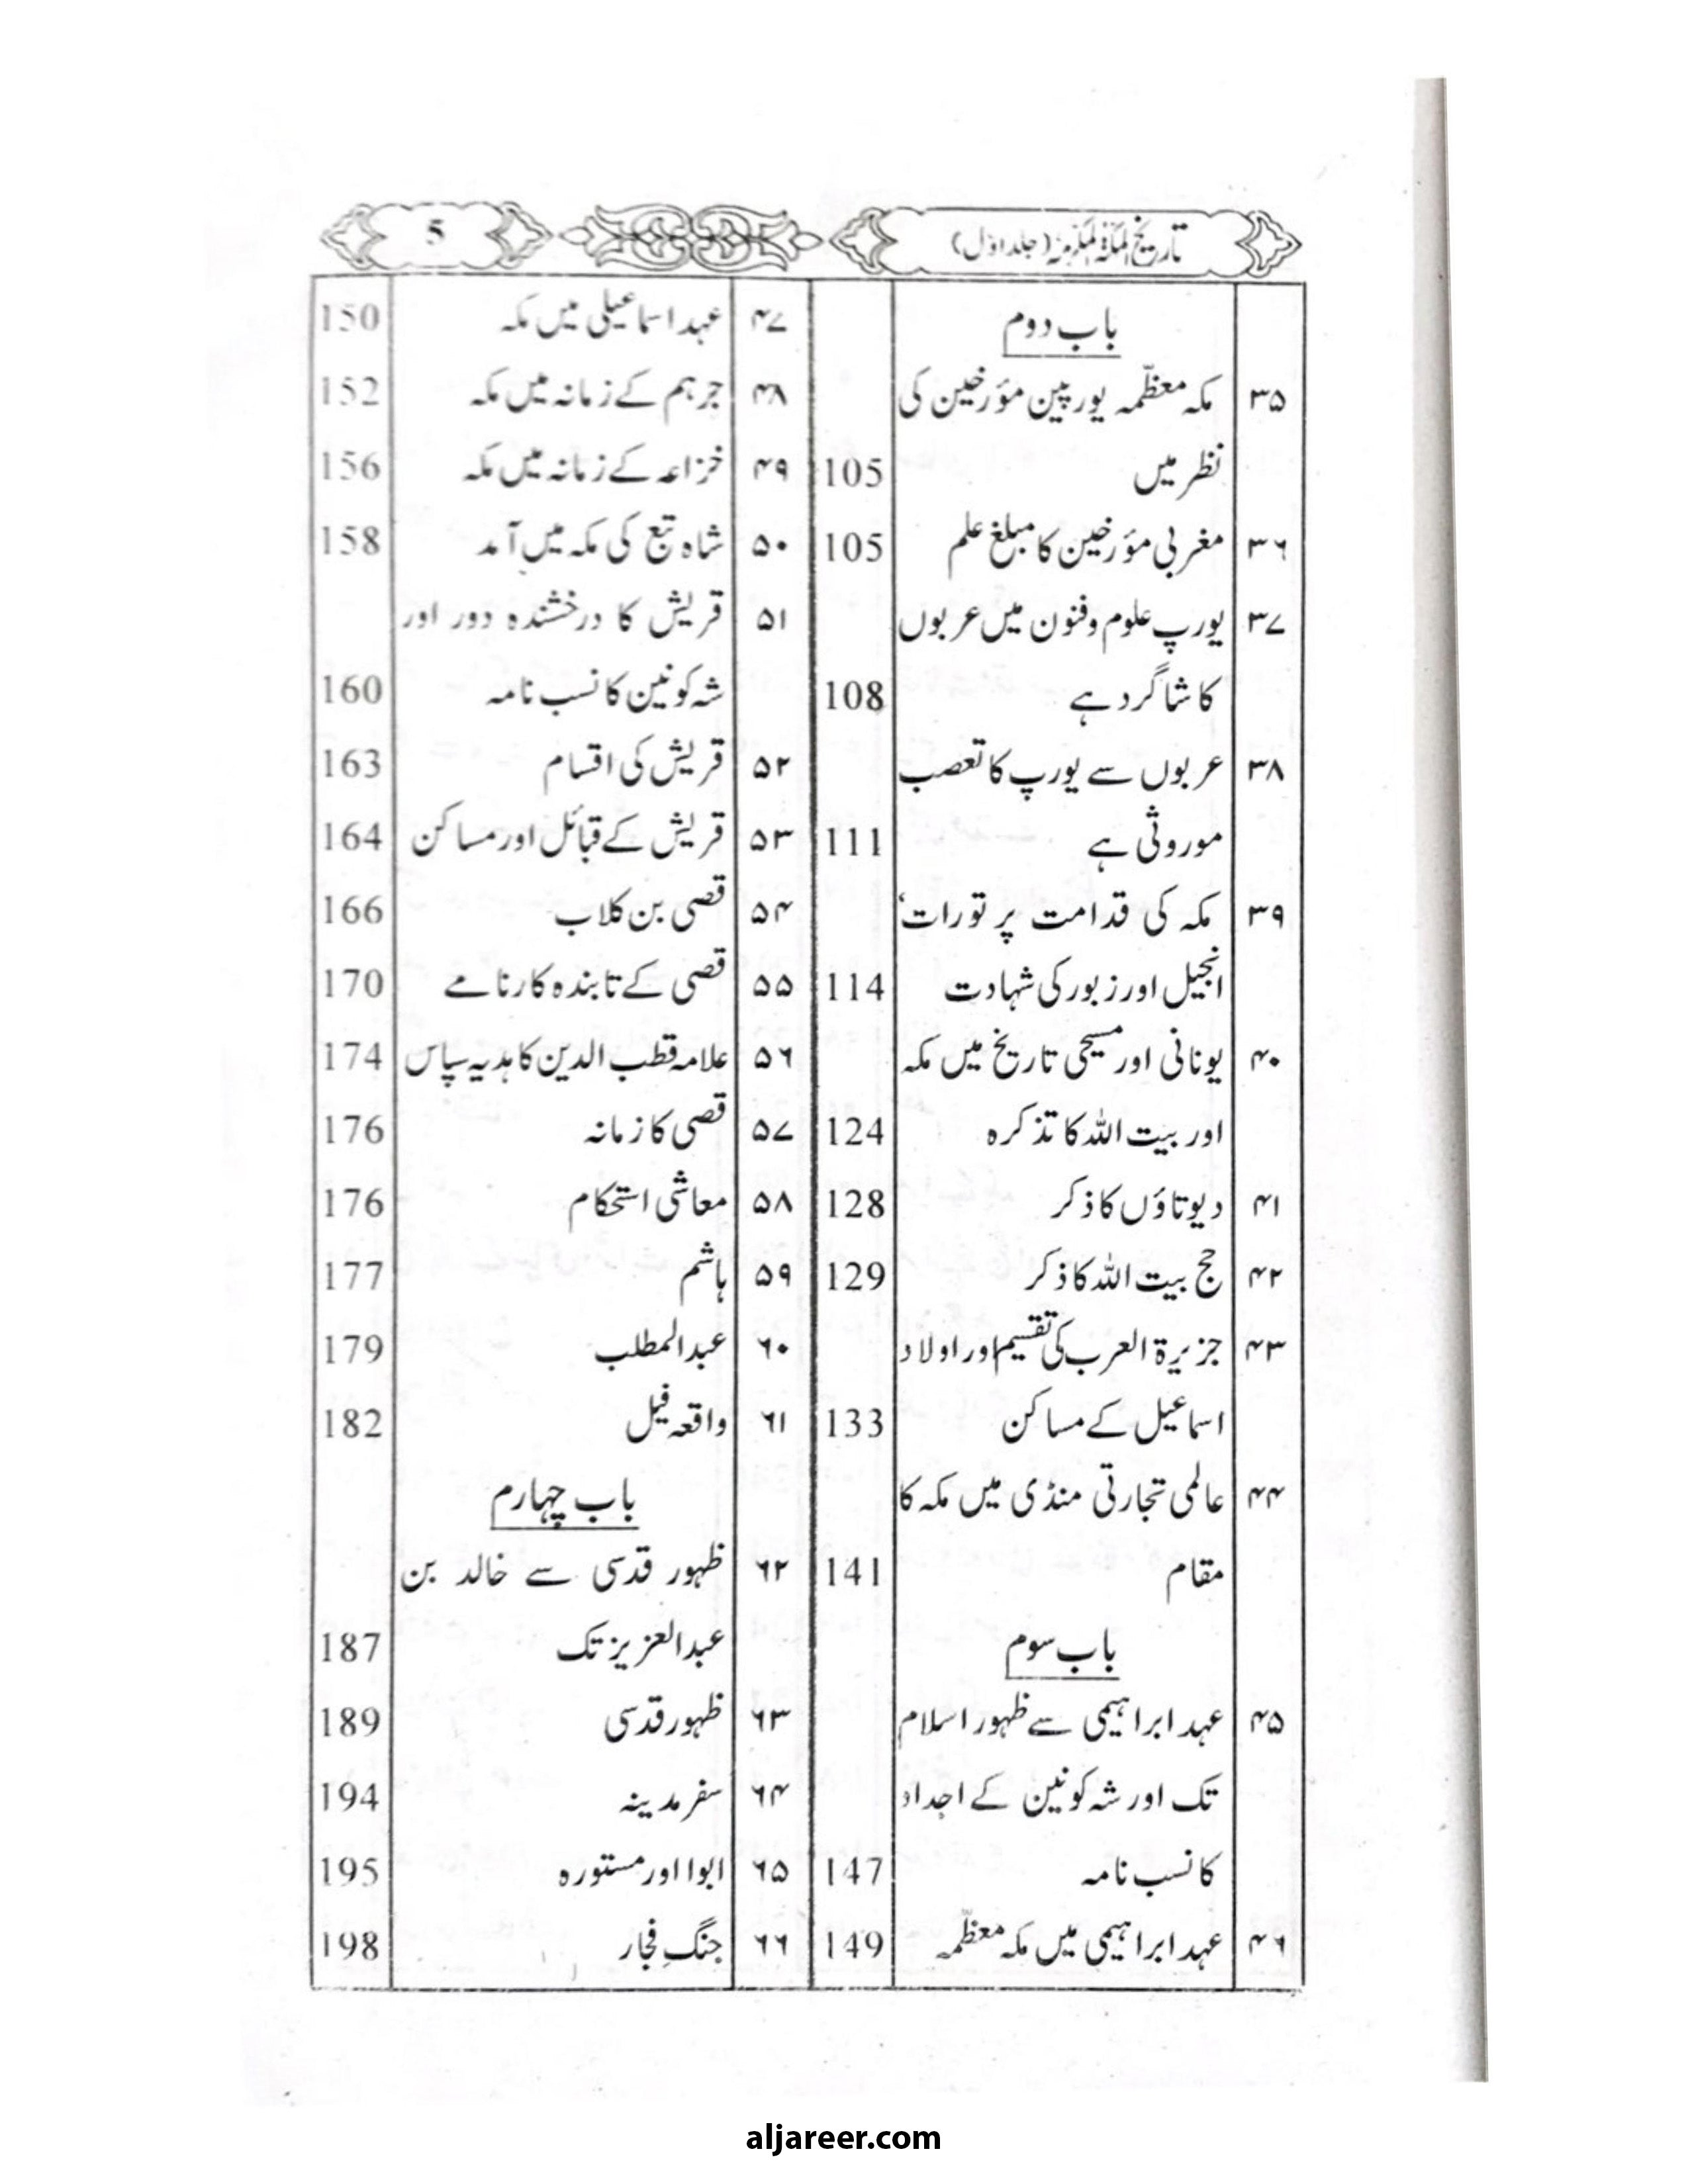 تاریخ المکۃ المکرمہ (جلد اوّل)
5
باب دوم
۳۵ مکہ معظّمہ یورپین مؤرخین کی
نظر میں 105
۳۶ مغربی مؤرخین کا مبلغ علم 105
۳۷ یورپ علوم و فنون میں عربوں
کا شاگرد ہے 108
۳۸ عربوں سے یورپ کا تعصب
موروثی ہے 111
۳۹ مکہ کی قدامت پر تورات‘
انجیل اور زبور کی شہادت 114
۴۰ یونانی اور مسیحی تاریخ میں مکہ
اور بیت اللہ کا تذکرہ 124
۴۱ دیوتاؤں کا ذکر 128
۴۲ حج بیت اللہ کا ذکر 129
۴۳ جزیرۃ العرب کی تقسیم اور اولاد
اسماعیل کے مساکن 133
۴۴ عالمی تجارتی منڈی میں مکہ کا
مقام 141
باب سوم
۴۵ عہد ابراہیمی سے ظہور اسلام
تک اور شہ کونین کے اجداد
کا نسب نامہ 147
۴۶ عہد ابراہیمی میں مکہ معظّمہ 149
۴۷ عہد اسماعیلی میں مکہ 150
۴۸ جرہم کے زمانہ میں مکہ 152
۴۹ خزاعہ کے زمانہ میں مکہ 156
۵۰ شاہ تبع کی مکہ میں آمد 158
۵۱ قریش کا درخشندہ دور اور
شہ کونین کا نسب نامہ 160
۵۲ قریش کی اقسام 163
۵۳ قریش کے قبائل اور مساکن 164
۵۴ قصی بن کلاب 166
۵۵ قصی کے تابندہ کارنامے 170
۵۶ علامہ قطب الدین کا ہدیہ سپاس 174
۵۷ قصی کا زمانہ 176
۵۸ معاشی استحکام 176
۵۹ ہاشم 177
۶۰ عبدالمطلب 179
۶۱ واقعہ فیل 182
باب چہارم
۶۲ ظہور قدسی سے خالد بن
عبدالعزیز تک 187
۶۳ ظہور قدسی 189
۶۴ سفر مدینہ 194
۶۵ ابوا اور مستورہ 195
۶۶ جنگِ فجار 198
aljareer.com